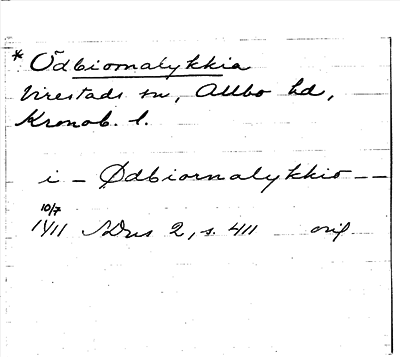 * Ödbiornalykkia
Virestads sn, Allbo hd,
Kronob. l.
i – Ødbiornalykkio – –
10/7
1411 SDns 2, s. 411 orig